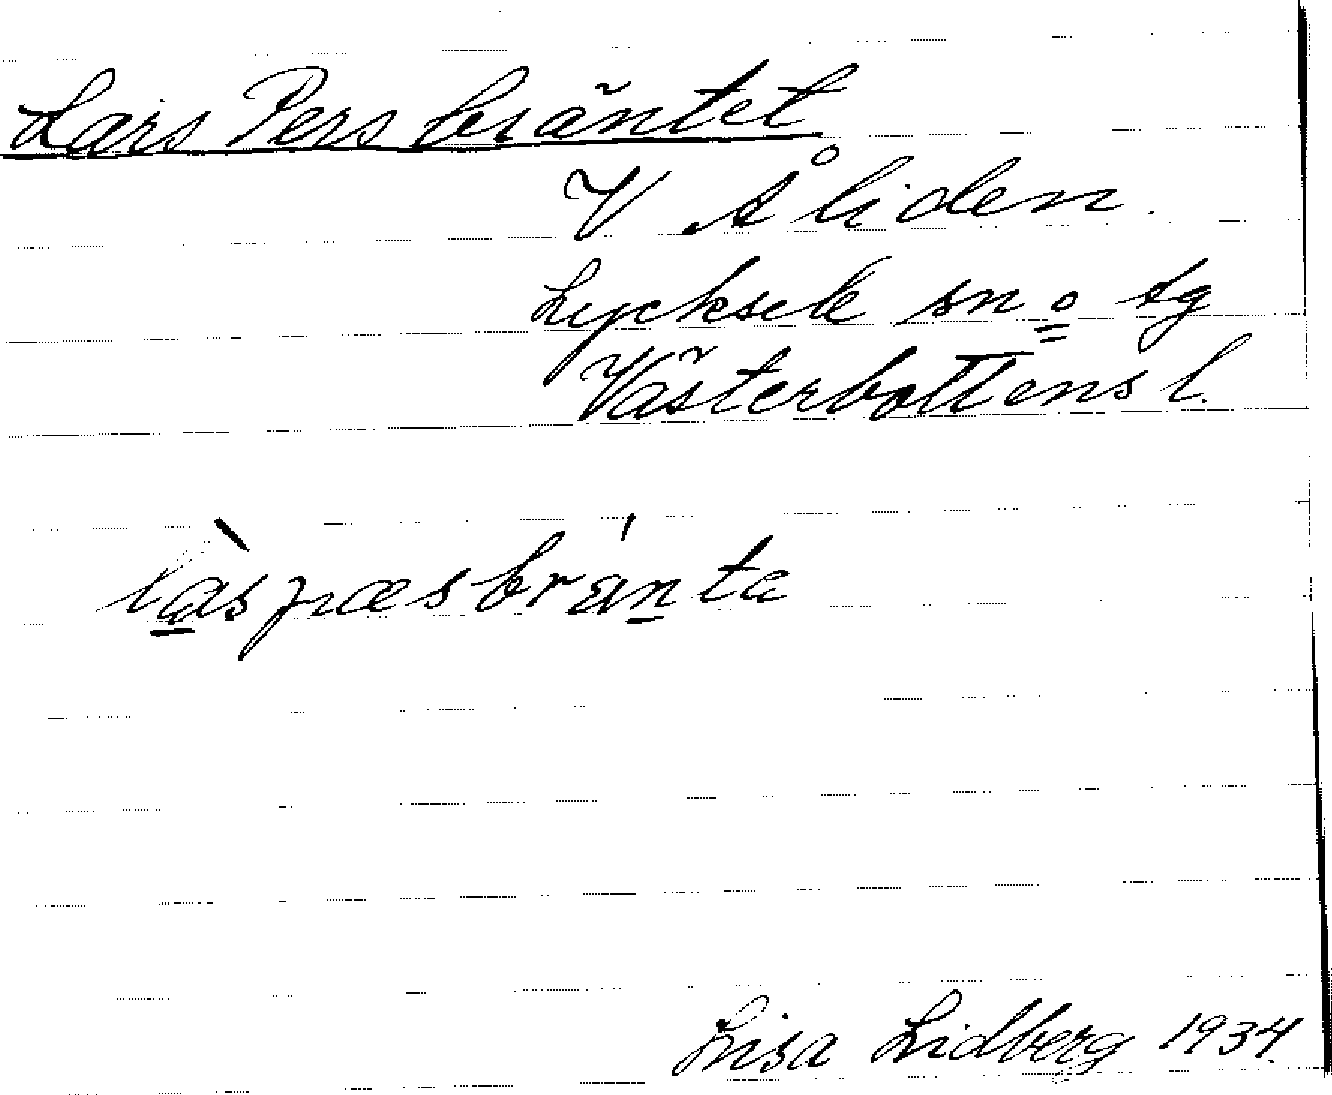 Lars Persbräntet
V Åliden.
Lycksele sn o tg
Västerbottens l.
làspæsbránta
Lisa Lidberg 1934